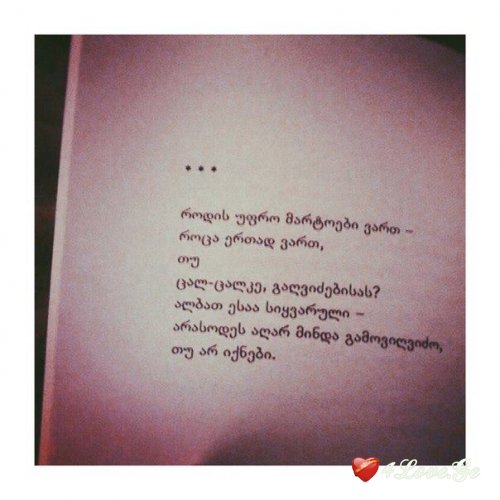 * * *
როდის უფრო მარტოები ვართ –
როცა ერთად ვართ,
თუ
ცალ-ცალკე, გაღვიძებისას?
ალბათ ესაა სიყვარული –
არასოდეს აღარ მინდა გამოვიღვიძო,
თუ არ იქნები.
4Love.Ge